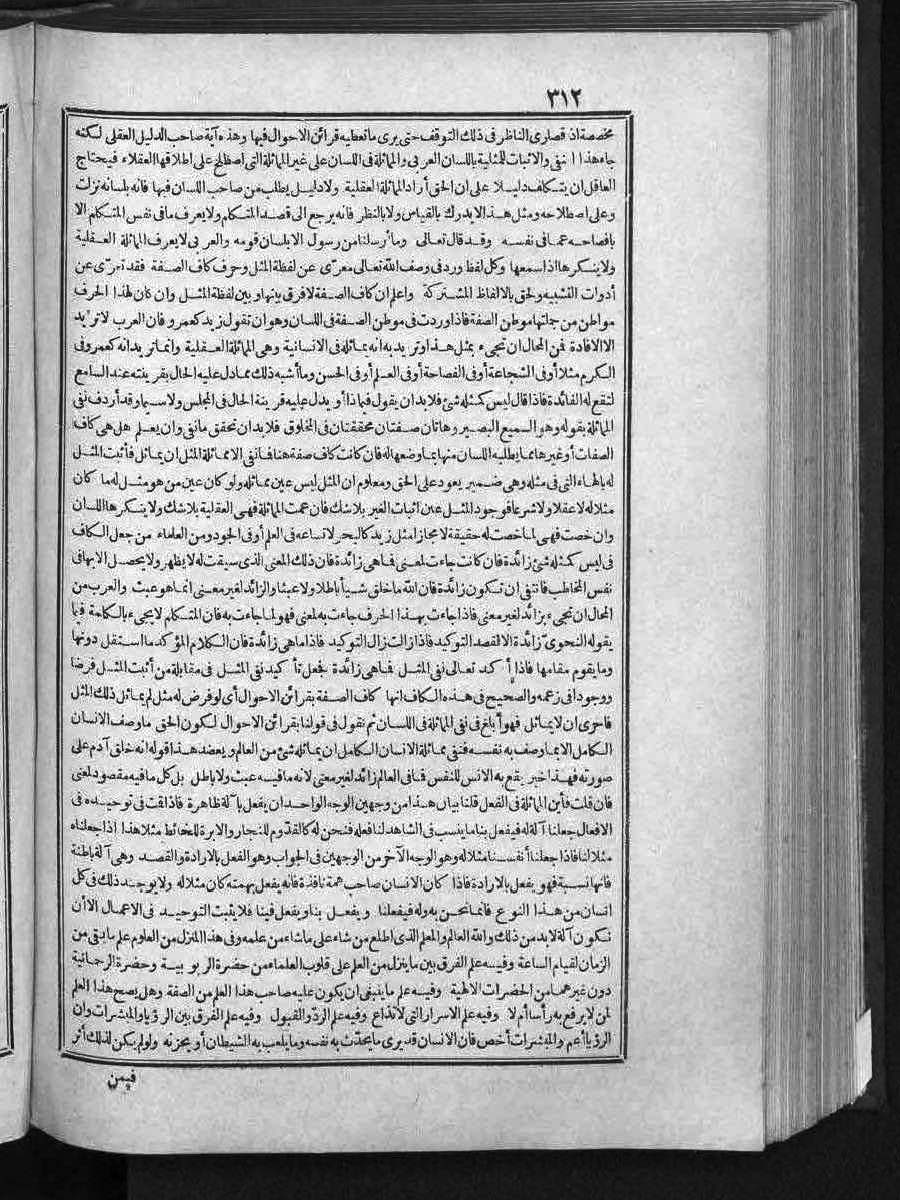 ٣١٢
مخصصة اذ قصارى الناظر فى ذلك التوقف حتى يرى ما تعطيه قرائن الاحوال فيها وهذه آية صاحب الدليل العقلى لكنه
جاء هذا النفى والاثبات للمثلية باللسان العربى والمماثلة فى اللسان على غير المماثلة التى اصطلح على اطلاقها العقلاء فيحتاج
العاقل ان يتكلف دليلا على ان الحق أراد المماثلة العقلية ولا دليل يطلب من صاحب اللسان فيها فانه بلسانه نزلت
وعلى اصطلاحه ومثل هذا لا يدرك بالقياس ولا بالنظر فانه يرجع الى قصد المتكلم ولا يعرف ما فى نفس المتكلم الا
بافصاحه عما فى نفسه وقد قال تعالى وما أرسلنا من رسول الا بلسان قومه والعربى لا يعرف المماثلة العقلية
ولا ينكرها اذا سمعها وكل لفظ ورد فى وصف الله تعالى معرّى عن لفظة المثل وحرف كاف الصفة فقد تعرّى عن
أدوات التشبيه ولحق بالالفاظ المشتركة واعلم ان كاف الصفة لا فرق بينها وبين لفظة المثل وان كان لهذا الحرف
مواطن من جملتها موطن الصفة فاذا وردت فى موطن الصفة فى اللسان وهو ان تقول زيد كعمرو فان العرب لا تريد
الا الافادة فمن المحال ان تجىء بمثل هذا وتريد به انه يماثله فى الانسانية وهى المماثلة العقلية وانما تريد انه كعمرو فى
الكرم مثلا أو فى الشجاعة أو فى الفصاحة أو فى العلم أو فى الحسن وما أشبه ذلك مما دل عليه الحال بقرينته عند السامع
لتقع له الفائدة فاذا قال ليس كمثله شئ فلا بد ان يقول فيما ذا أو يدل عليه قرينة الحال فى المجلس ولا سيما وقد أردف نفى
المماثلة بقوله وهو السميع البصير وهاتان صفتان محققتان فى المخلوق فلا بد ان تحقق ما نفى وان يعلم هل هى كاف
الصفات أو غيرها مما يطلبه اللسان منها بما وضعها له فان كانت كاف صفة هنا فما نفى الا مماثلة المثل ان يماثل فأثبت المثل
له بالهاء التى فى مثله وهى ضمير يعود على الحق ومعلوم ان المثل ليس عين مماثله ولو كان عين من هو مثل له ما كان
مثلا له لا عقلا ولا شرعا فوجود المثل عين اثبات الغير بلا شك فان عمت المماثلة فهى العقلية بلا شك ولا ينكرها اللسان
وان خصت فهى لما خصت له حقيقة لا مجازا مثل زيد كالبحر لاتساعه فى العلم أو فى الجود ومن العلماء من جعل الكاف
فى ليس كمثله شئ زائدة فان كانت جاءت لمعنى فما هى زائدة فان ذلك المعنى الذى سيقت له لا يظهر ولا يحصل الا بها فى
نفس المخاطب فانتفى ان تكون زائدة فان الله ما خلق شيأ باطلا ولا عبثا والزائد لغير معنى انما هو عبث والعرب من
المحال ان تجىء بزائد لغير معنى فاذا جاءت بهذا الحرف جاءت به لمعنى فهو لما جاءت به فان المتكلم لا يجىء بالكلمة فيما
يقوله النحوىّ زائدة الا لقصد التوكيد فاذا زالت زال التوكيد فاذا ما هى زائدة فان الكلام المؤكد ما استقل دونها
وما يقوم مقامها فاذا أكد تعالى نفى المثل فما هى زائدة فجعل تأكيد نفى المثل فى مقابلة من أثبت المثل فرضا
ووجودا فى زعمه والصحيح فى هذه الكاف انها كاف الصفة بقرائن الاحوال أى لو فرض له مثل لم يماثل ذلك المثل
فاحرى ان لا يماثل فهو أبلغ فى نفى المماثلة فى اللسان ثم نقول فى قولنا بقرائن الاحوال لكون الحق ما وصف الانسان
الكامل الا بما وصف به نفسه فنفى مماثلة الانسان الكامل ان يماثله شئ من العالم ويعضد هذا قوله انه خلق آدم على
صورته فهذا خبر يقع به الانس للنفس فما فى العالم زائد لغير معنى لانه ما فيه عبث ولا باطل بل كل ما فيه مقصود لمعنى
فان قلت فأين المماثلة فى الفعل قلنا بيان هذا من وجهين الوجه الواحد ان يفعل بآلة ظاهرة فاذا قت فى توحيده فى
الافعال جعلنا آلة له فيفعل بنا ما ينسب فى الشاهد لنا فعله فنحن له كالقدّوم للنجار والابرة للخائط مثلا هذا اذا جعلناه
مثلا لنا فاذا جعلنا أنفسنا مثلا له وهو الوجه الآخر من الوجهين فى الجواب وهو الفعل بالارادة والقصد وهى آلة باطنة
فانها نسبة فهو يفعل بالارادة فاذا كان الانسان صاحب همة نافذة فانه يفعل بهمته كان مثلا له ولا يوجد ذلك فى كل
انسان من هذا النوع فانما نحن به وله فيفعلنا ويفعل بنا ويفعل فينا فلا يثبت التوحيد فى الاعمال الا أن
نكون آلة لا بد من ذلك والله العالم والمعلم الذى اطلع من شاء على ما شاء من علمه وفى هذا المنزل من العلوم علم ما بقى من
الزمان لقيام الساعة وفيه علم الفرق بين ما ينزل من العلم على قلوب العلماء من حضرة الربوبية وحضرة الرحمانية
دون غيرهما من الحضرات الالهية وفيه علم ما ينبغى ان يكون عليه صاحب هذا العلم من الصفة وهل يصح هذا العلم
لمن لا يرفع به رأسا أم لا وفيه علم الاسرار التى لا تذاع وفيه علم الردّ والقبول وفيه علم الفرق بين الرؤيا والمبشرات وان
الرؤيا أعم والمبشرات أخص فان الانسان قد يرى ما يحدّث به نفسه وما يلعب به الشيطان أو يحزنه ولو لم يكن لذلك أثر
فيمن